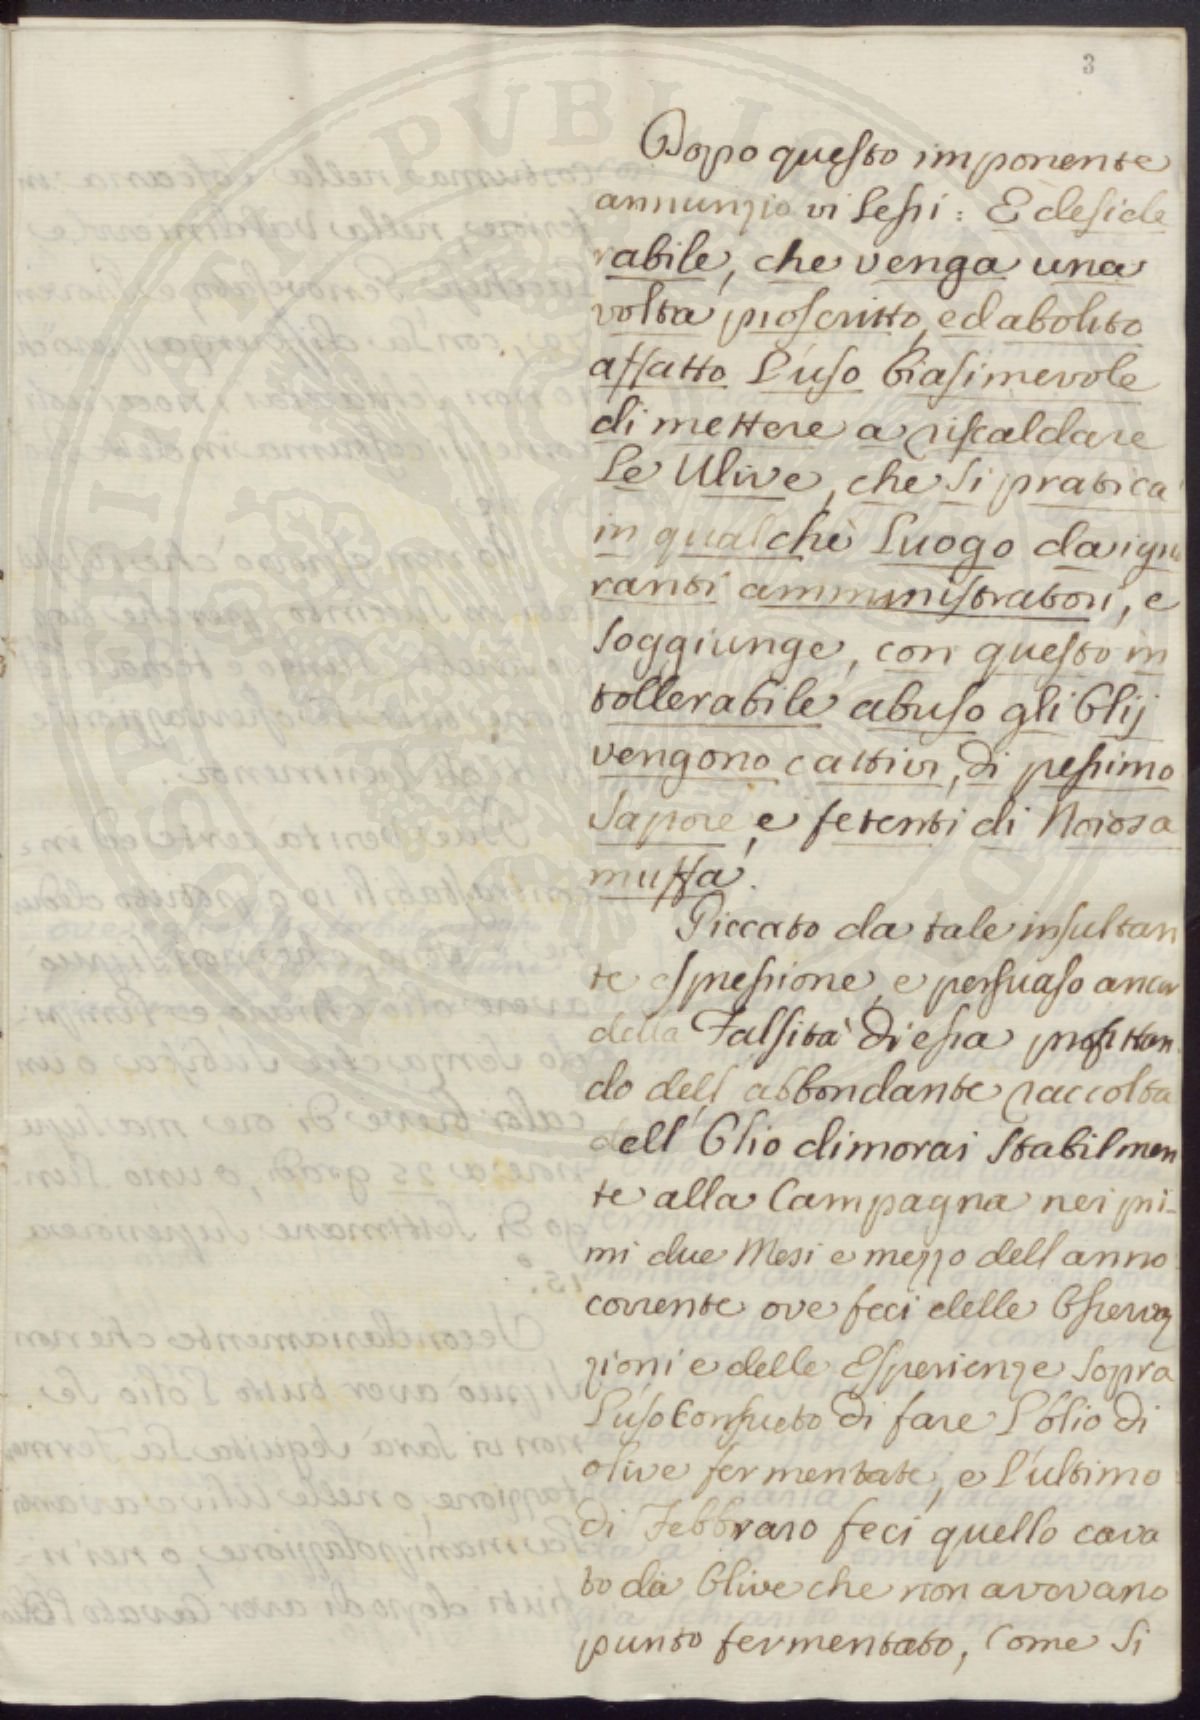 3
Dopo questo imponente
annunzio vi lessi: È deside
rabile, che venga una
volta proscritto, ed abolito
affatto l'uso biasimevole
di mettere a riscaldare
le Ulive, che si pratica
in qualche luogo da igno
ranti amministratori, e
soggiunge, con questo in
tollerabile abuso gli Olij
vengono cattivi, di pessimo
sapore, e fetenti di noiosa
muffa.
Piccato da tale insultan
te espressione, e persuaso ancor
della Falsità di essa profittan
do dell'abbondante raccolta
dell'Olio dimorai stabilmen
te alla Campagna nei pri-
mi due Mesi e mezzo dell'anno
corrente ove feci delle Osserva
zioni e delle Esperienze sopra
l'uso Consueto di fare l'olio di
olive fermentate, e l'ultimo
di Febbraro feci quello cava
to da Olive che non avevano
punto fermentato, Come si